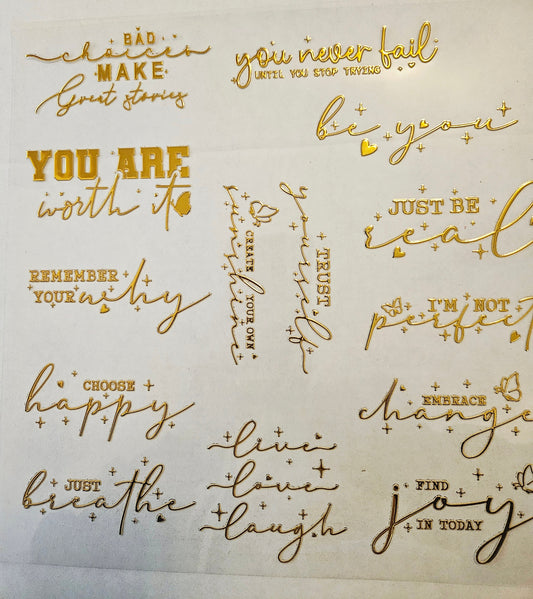 BAD
choices
MAKE
Great stories
you never fail
UNTIL YOU STOP TRYING
be you
YOU ARE
worth it
JUST BE
real
CREATE YOUR OWN
sunshine
TRUST
yourself
REMEMBER
YOUR why
I'M NOT
perfect
CHOOSE
happy
EMBRACE
change
JUST
breathe
live
love
laugh
FIND
joy
IN TODAY